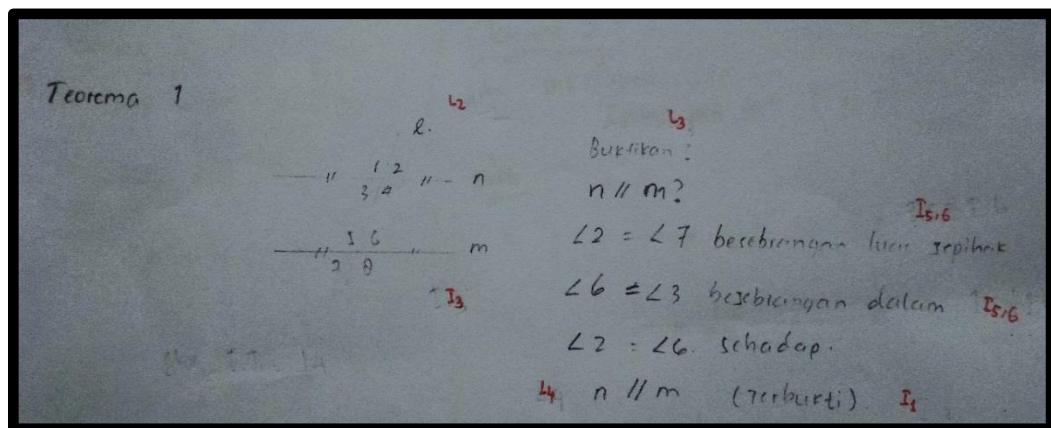 Teorema 1
L2
l.
1 2
n
3 4
5 6
m
7 8
I3
L3
Buktikan :
n // m?
I5,6
∠2 = ∠7 besebrangan luar sepihak
∠6 = ∠3 besebrangan dalam I5,6
∠2 = ∠6. sehadap.
L4 n // m (Terbukti) I1